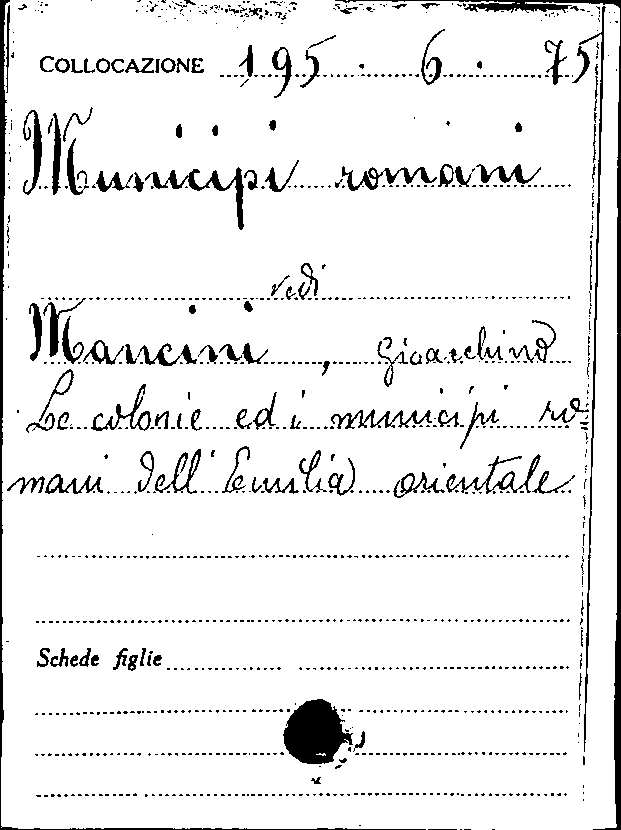 COLLOCAZIONE 195 . 6 . 75
Municipi romani
vedi
Mancini, Gioacchino
Le colonie ed i municipi ro
mani dell'Emilia orientale
Schede figlie